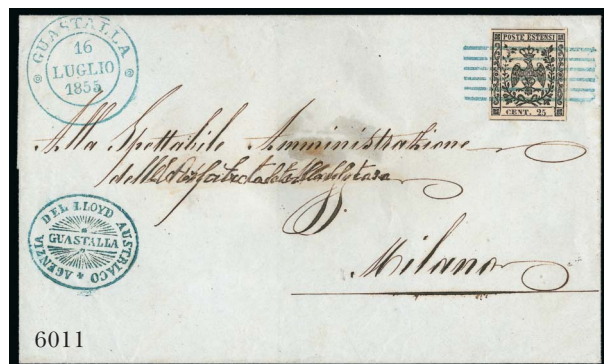 GUASTALLA
16
LUGLIO
1855
POSTE ESTENSI
CENT. 25
Alla Spettabile Amministrazione
Milano
AGENZIA DEL LLOYD AUSTRIACO
GUASTALLA
6011